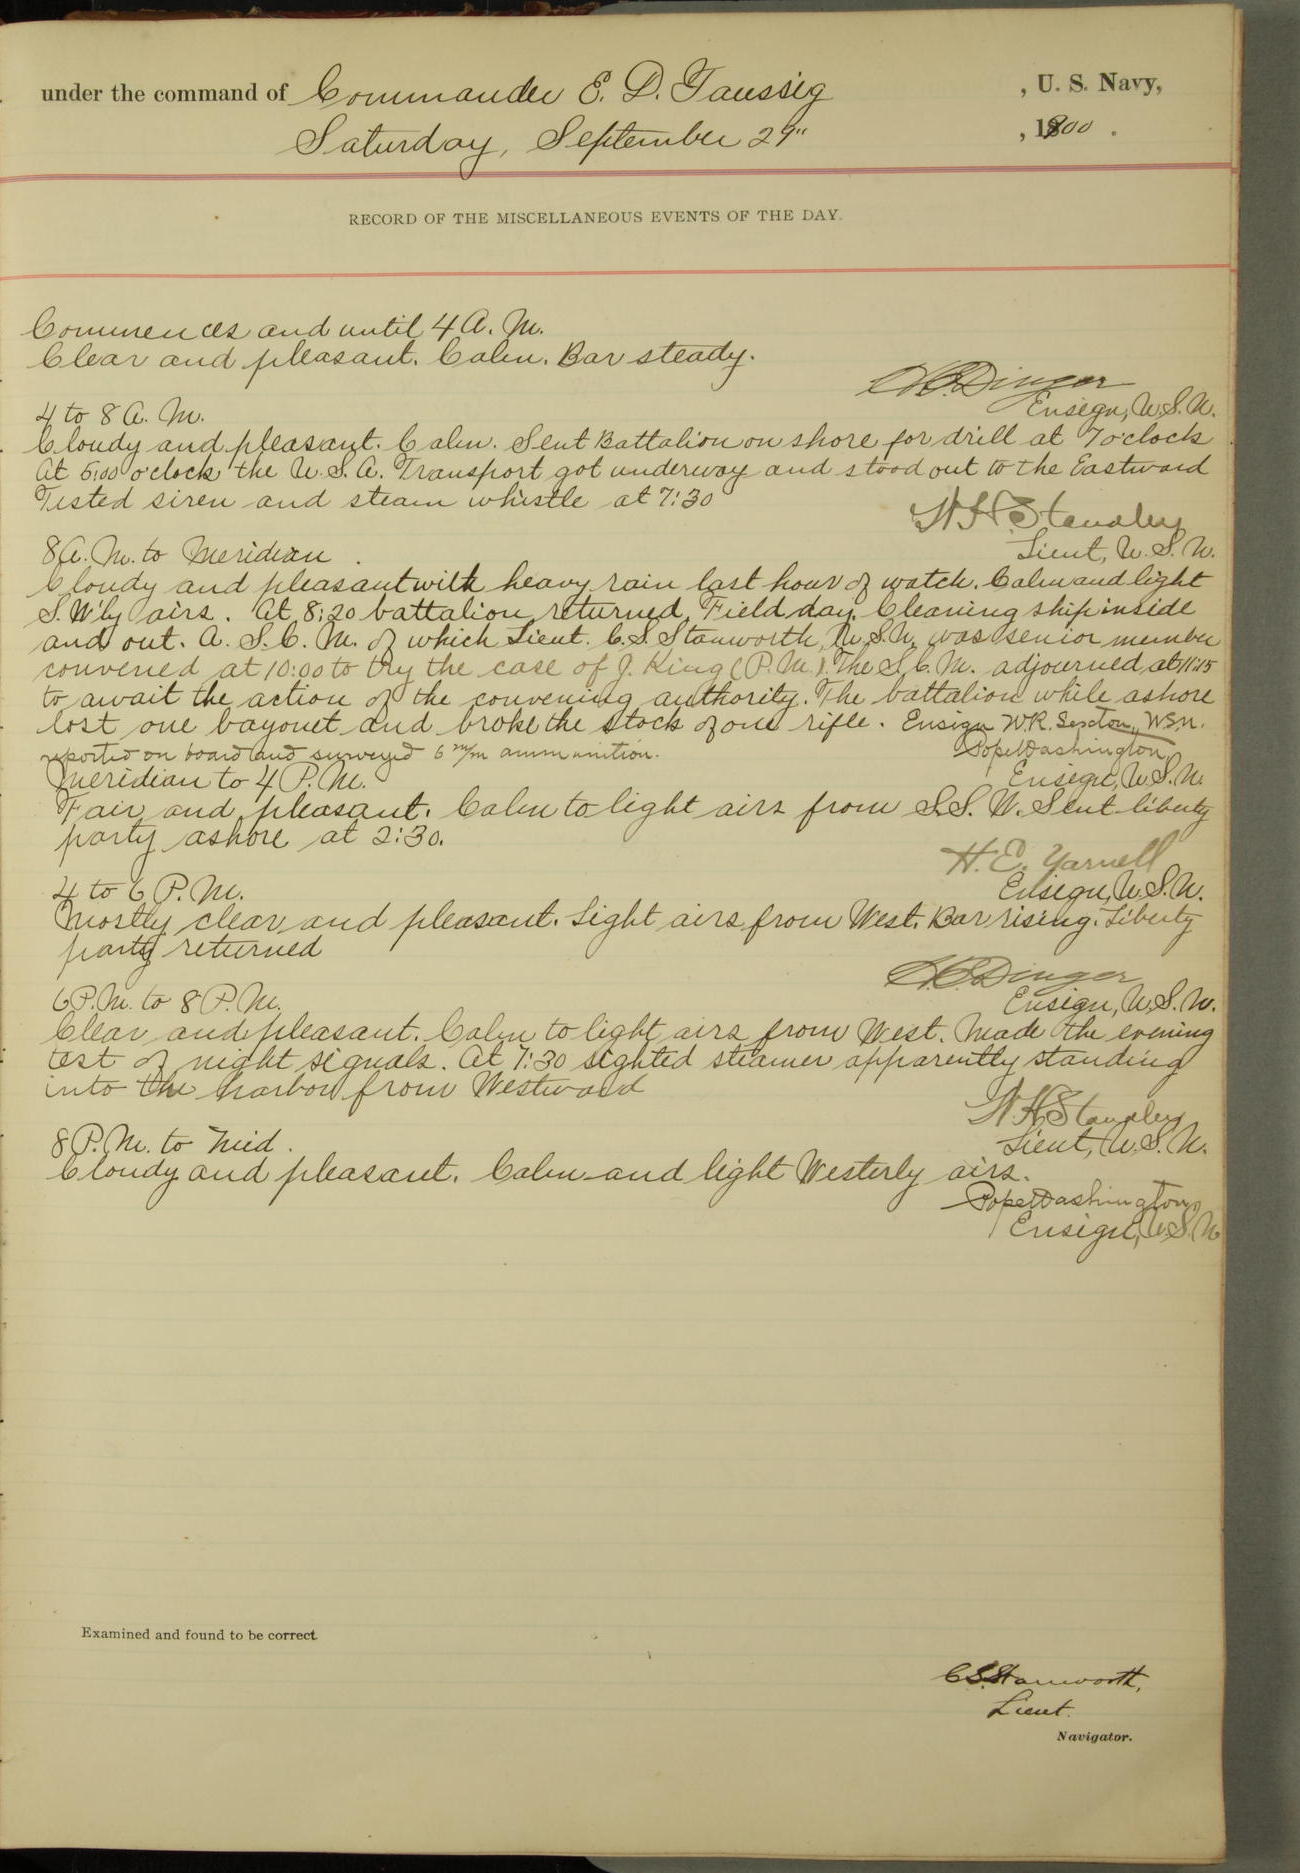 under the command of Commander E. D. Taussig , U. S. Navy,
Saturday, September 29" , 1900 .
RECORD OF THE MISCELLANEOUS EVENTS OF THE DAY.
Commences and until 4 A. M.
Clear and pleasant. Calm. Bar steady.
H.C. Dinger
Ensign, U.S.N.
4 to 8 A. M.
Cloudy and pleasant. Calm. Sent Battalion on shore for drill at 7 o'clock
At 5:00 o'clock the U.S.A. Transport got underway and stood out to the Eastward
Tested siren and steam whistle at 7:30
W H Standley
Lieut, U.S.N.
8 A. M. to Meridian .
Cloudy and pleasant with heavy rain last hour of watch. Calm and light
S.W'ly airs. At 8:20 battalion returned. Field day. Cleaning ship inside
and out. A. S. C. M. of which Lieut. C.S. Stanworth, U.S.N. was senior member
convened at 10:00 to try the case of J. King (P.M.). The S.C.M. adjourned at 11:15
to await the action of the convening authority. The battalion while ashore
lost one bayonet and broke the stock of one rifle. Ensign W.R. Sexton, U.S.N.
reported on board and surveyed 6 m/m ammunition.
Pope Washington
Ensign, U.S.N.
Meridian to 4 P. M.
Fair and pleasant. Calm to light airs from S.S.W. Sent liberty
party ashore at 2:30.
H. E. Yarnell
Ensign, U.S.N.
4 to 6 P. M.
Mostly clear and pleasant. Light airs from West. Bar rising. Liberty
party returned
H.C. Dinger
Ensign, U.S.N.
6 P. M. to 8 P. M.
Clear and pleasant. Calm to light airs from West. Made the evening
test of night signals. At 7:30 sighted steamer apparently standing
into the harbor from Westward
W H Standley
Lieut, U.S.N.
8 P. M. to Mid.
Cloudy and pleasant. Calm and light Westerly airs.
Pope Washington,
Ensign, U.S.N
Examined and found to be correct
C.S. Stanworth,
Lieut.
Navigator.